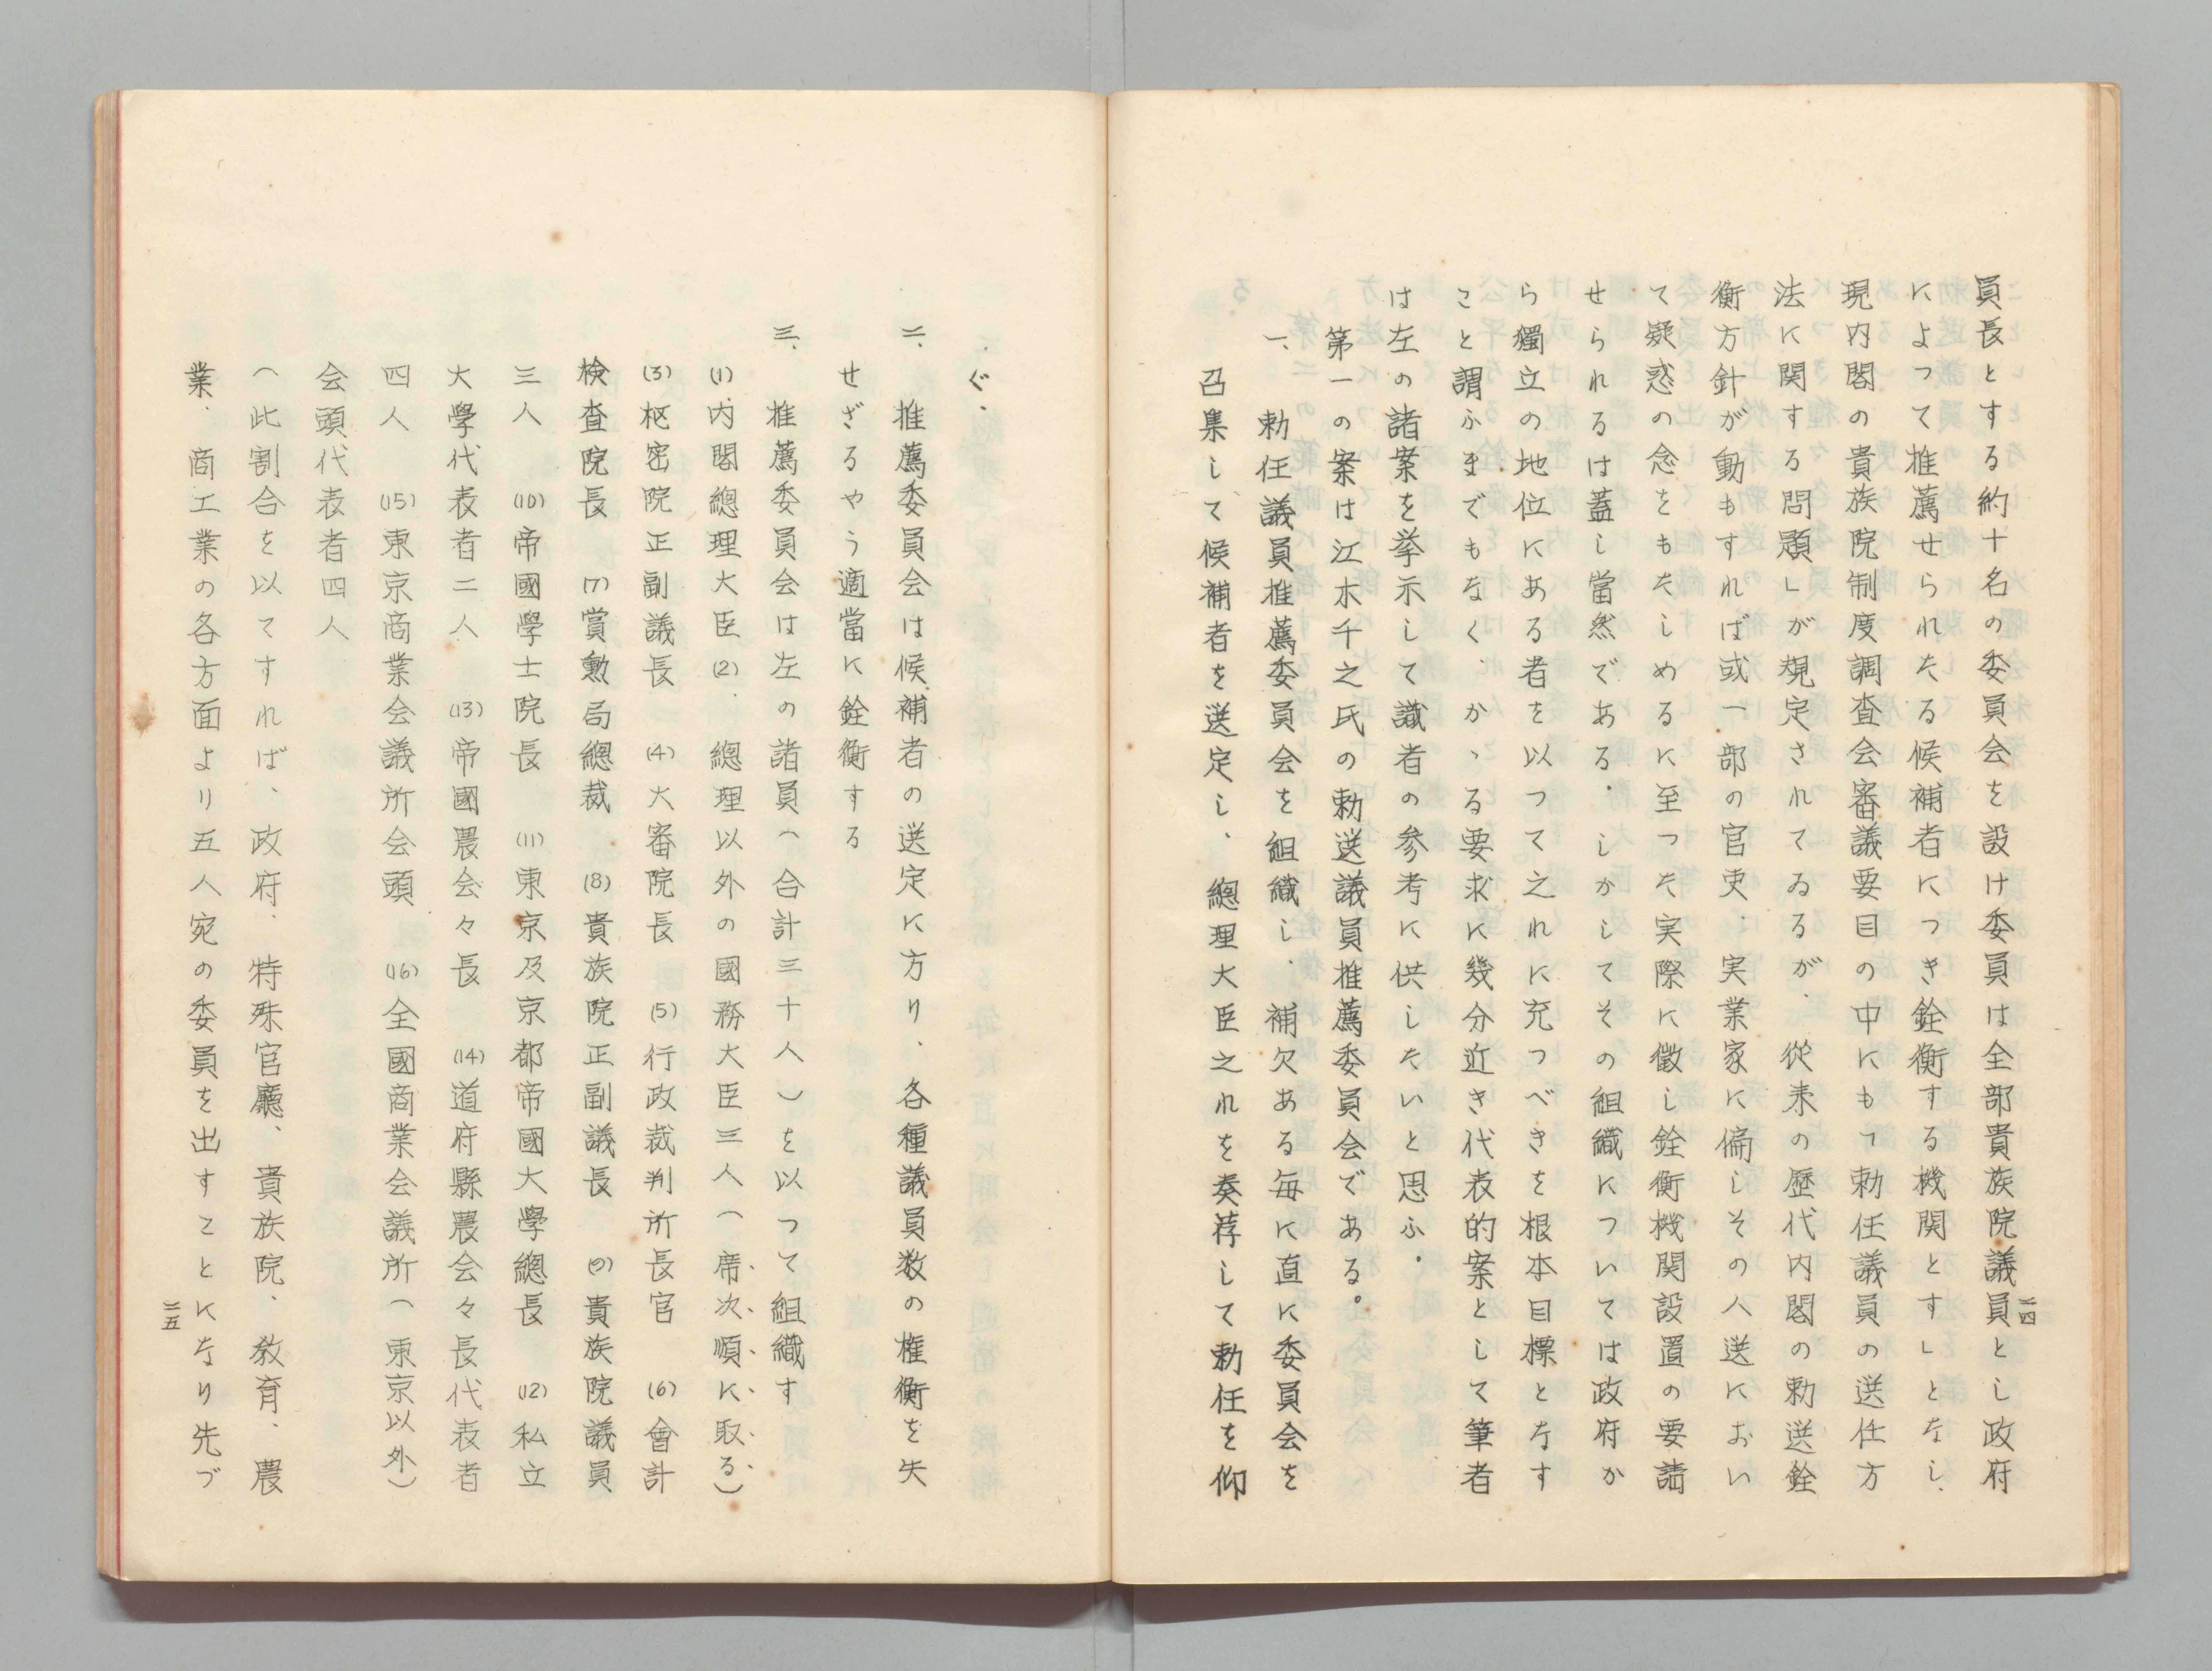 員長とする約十名の委員会を設け委員は全部貴族院議員とし政府
によつて推薦せられたる候補者につき銓衡する機関とす」となし、
現内閣の貴族院制度調査会審議要目の中にも「勅任議員の送任方
法に関する問題」が規定されてゐるが、従来の歴代内閣の勅送銓
衡方針が動もすれば或一部の官吏、実業家に偏しその人送におい
て疑惑の念をもたしめるに至つた実際に徴し銓衡機関設置の要請
せられるは蓋し當然である。しかしてその組織については政府か
ら獨立の地位にある者を以つて之れに充つべきを根本目標となす
こと謂ふまでもなく、かゝる要求に幾分近き代表的案として筆者
は左の諸案を挙示して識者の参考に供したいと思ふ。
第一の案は江木千之氏の勅送議員推薦委員会である。
一、勅任議員推薦委員会を組織し、補欠ある毎に直に委員会を
召集して候補者を送定し、總理大臣之れを奏荐して勅任を仰
三四
ぐ、
二、推薦委員会は候補者の送定に方り、各種議員数の権衡を失
せざるやう適當に銓衡する
三、推薦委員会は左の諸員(合計三十人)を以つて組織す
(1)内閣總理大臣 (2)、總理以外の國務大臣三人(席次順に取る)
(3)枢密院正副議長 (4)大審院長 (5)行政裁判所長官 (6)會計
検査院長 (7)賞勲局總裁 (8)貴族院正副議長 (9)貴族院議員
三人 (10)帝國學士院長 (11)東京及京都帝國大學總長 (12)私立
大學代表者二人 (13)帝國農会々長 (14)道府縣農会々長代表者
四人 (15)東京商業会議所会頭 (16)全國商業会議所(東京以外)
会頭代表者四人
(此割合を以てすれば、政府、特殊官廳、貴族院、教育、農
業、商工業の各方面より五人宛の委員を出すことになり先づ
三五